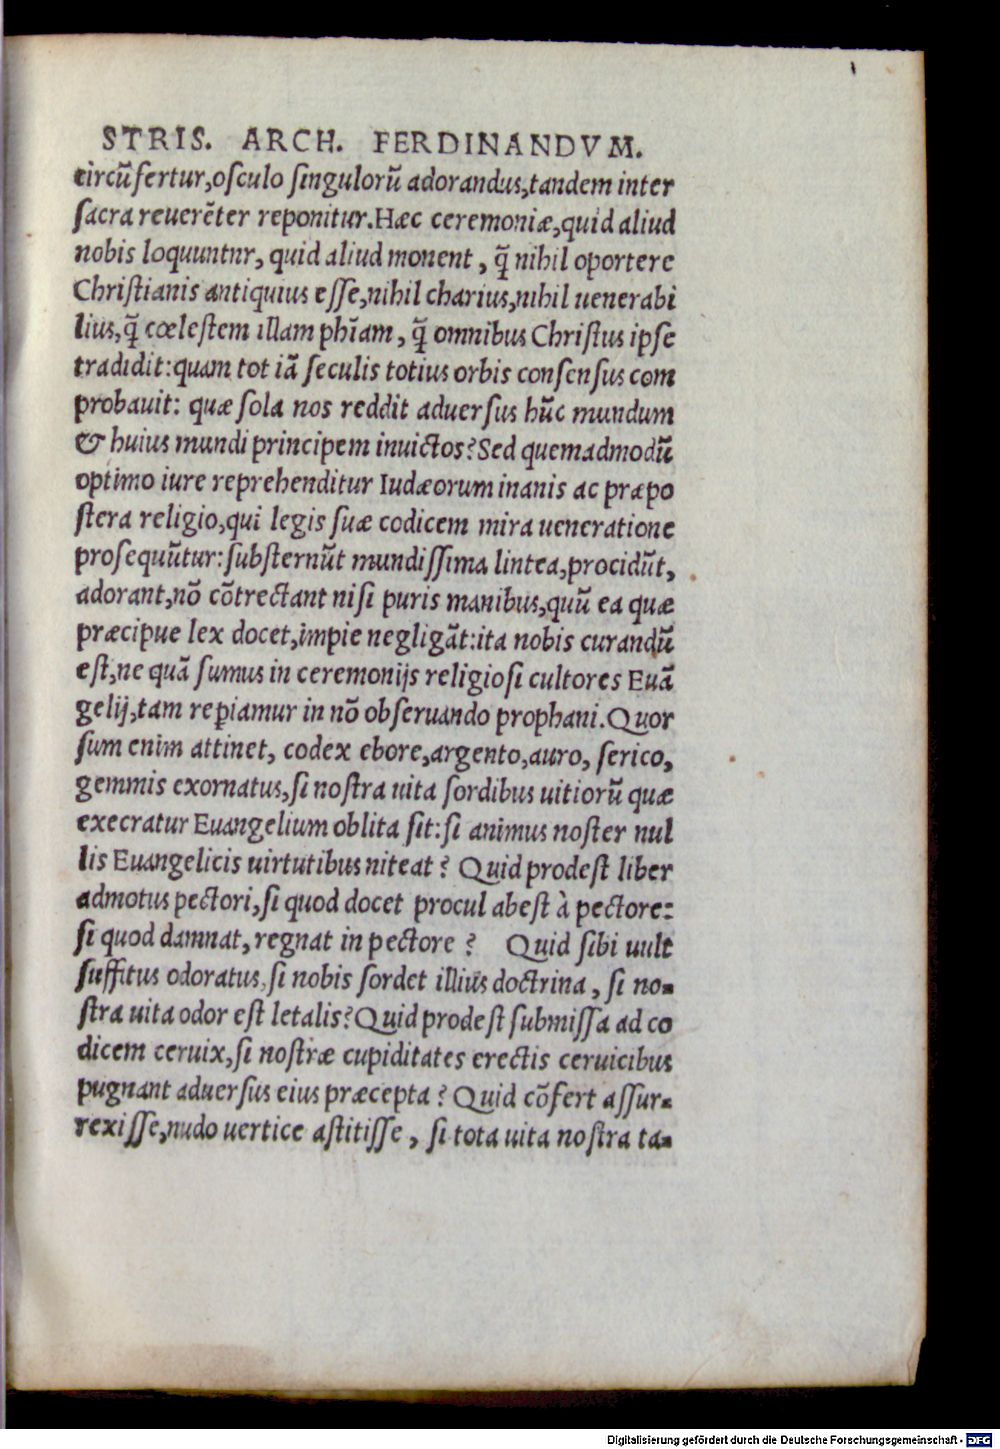 STRIS. ARCH. FERDINANDVM.
circũfertur,osculo singulorũ adorandus,tandem inter
sacra reuerẽter reponitur.Hæc ceremoniæ,quid aliud
nobis loquuntnr, quid aliud monent, q̃ nihil oportere
Christianis antiquius esse,nihil charius,nihil uenerabi
lius,q̃ cœlestem illam phĩam, q̃ omnibus Christus ipse
tradidit:quam tot iã seculis totius orbis consensus com
probauit: quæ sola nos reddit aduersus hũc mundum
& huius mundi principem inuictos?Sed quemadmodũ
optimo iure reprehenditur Iudæorum inanis ac præpo
stera religio,qui legis suæ codicem mira ueneratione
prosequũtur:substernũt mundissima lintea,procidũt,
adorant,nõ cõtrectant nisi puris manibus,quũ ea quæ
præcipue lex docet,impie negligãt:ita nobis curandũ
est,ne quã sumus in ceremonijs religiosi cultores Euã
gelij,tam reꝑiamur in nõ obseruando prophani.Quor
sum enim attinet, codex ebore,argento,auro, serico,
gemmis exornatus,si nostra uita sordibus uitiorũ quæ
execratur Euangelium oblita sit:si animus noster nul
lis Euangelicis uirtutibus niteat? Quid prodest liber
admotus pectori,si quod docet procul abest à pectore:
si quod damnat,regnat in pectore? Quid sibi uult
suffitus odoratus,si nobis sordet illius doctrina, si no-
stra uita odor est letalis?Quid prodest submissa ad co
dicem ceruix,si nostræ cupiditates erectis ceruicibus
pugnant aduersus eius præcepta? Quid cõfert assur-
rexisse,nudo uertice astitisse, si tota uita nostra ta-
Digitalisierung gefördert durch die Deutsche Forschungsgemeinschaft - DFG